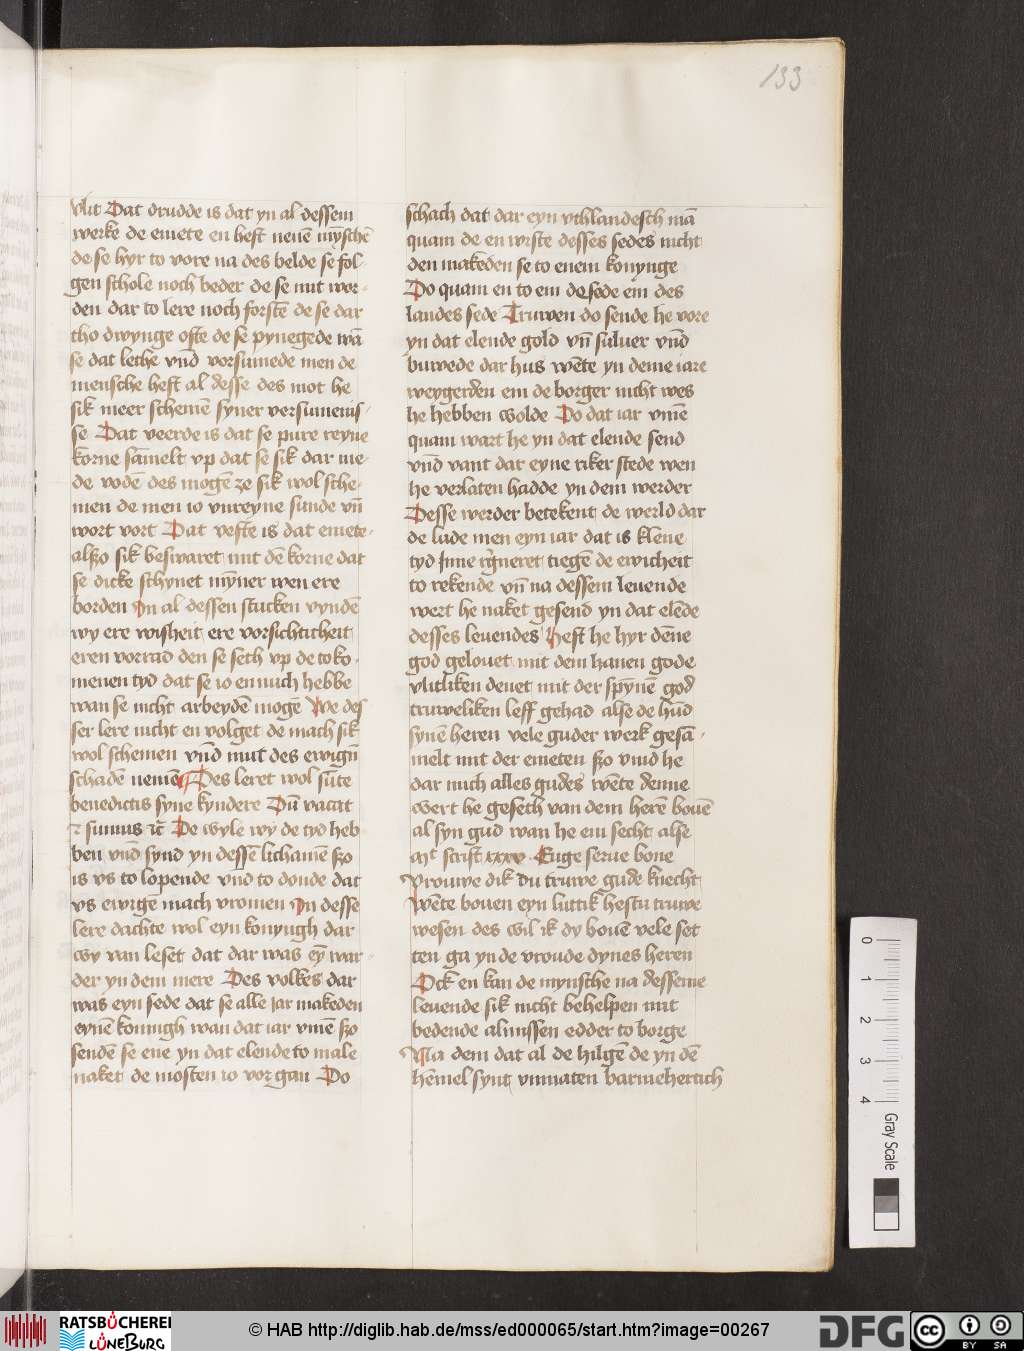 133
vlit Dat drudde is dat yn al dessem
werke de emete en heft neuē mȳschē
de se hyr to vore na des belde se fol-
gen schole noch beder de se mit wor-
den dar to lere noch forstē de se dar
tho dwynge ofte de se pynegede wā
se dat lethe vnd vorsumede men de
mensche heft al desse des mot he
sik meer schemē syner versumenis-
se Dat veerde is dat se pure reyne
korne sāmelt vp dat se sik dar me-
de vodē des mogē ze sik wol sche-
men de men io vnreyne sunde vn̄
wort vort Dat vefte is dat emete-
alszo sik beswaret mit dē korne dat
se dicke schynet mȳner wen ere
borden In al dessen stucken vyndē
wy ere wisheit ere vorsichticheit
eren vorrad den se seth vp de toko-
menen tyd dat se io ennuch hebbe
wan se nicht arbeydē mogē We des
ser lere nicht en volget de mach sik
wol schemen vnd mut des ewigen
schadē nemē Des leret wol sūte
benedictus syne kyndere Dū vacat
⁊ sumus ⁊c̄ De wyle wy de tyd heb
ben vnd synd yn dessē lichamē szo
is vs to lopende vnd to donde dat
vs ewige mach vromen In desse
lere dachte wol eyn konyngh dar
wy van leset dat dar was eȳ war-
der yn dem mere Des volkes dar
was eyn sede dat se alle iar makeden
eynē konnigh wan dat iar vmē szo
sendē se ene yn dat elende to male
naket de mosten io vor gan Do
schach dat dar eyn vthlandesch mā
quam de en wiste desses sedes nicht
den makeden se to enem konynge
Do quam en to em de sede em des
landes sede Truwen do sende he vore
yn dat elende gold vn̄ suluer vnd
buwede dar hus wēte yn deme iare
weygerden em de borger nicht wes
he hebben wolde Do dat iar vmē
quam wart he yn dat elende send
vnd vant dar eyne riker stede wen
he verlaten hadde yn dem werder
Desse werder betekent de werld dar
de lude men eyn iar dat is klene
tyd Inne tiegē de ewicheit
to rekende vn̄ na dessem leuende
wert he naket gesend yn dat elēde
desses leuendes Heft he hyr dēne
god gelouet mit dem hanen gode
vlitliken denet mit der spȳnē god
truweliken leff gehad alse de hūd
synē heren vele guder werk gesā-
melt mit der emeten szo vind he
dar nuch alles gudes wēte denne
wert he geseth van dem herē bouē
al syn gud wan he em secht alse
mt scrift xxxv Euge serue bone
Vrouwe dik du truwe gude knecht
Wēte bouen eyn luttik hestu truwe
wesen des wil ik dy bouē vele set
ten ga yn de vroude dynes heren
Ock en kan de mynsche na desseme
leuende sik nicht behelpen mit
bedende almissen edder to borge
Na dem dat al de hilgē de yn dē
hēmel synt vnmaten barmehertich
0 1 2 3 4 Gray Scale
RATSBÜCHEREI
LÜNEBURG
© HAB http://diglib.hab.de/mss/ed000065/start.htm?image=00267
DFG
cc BY SA